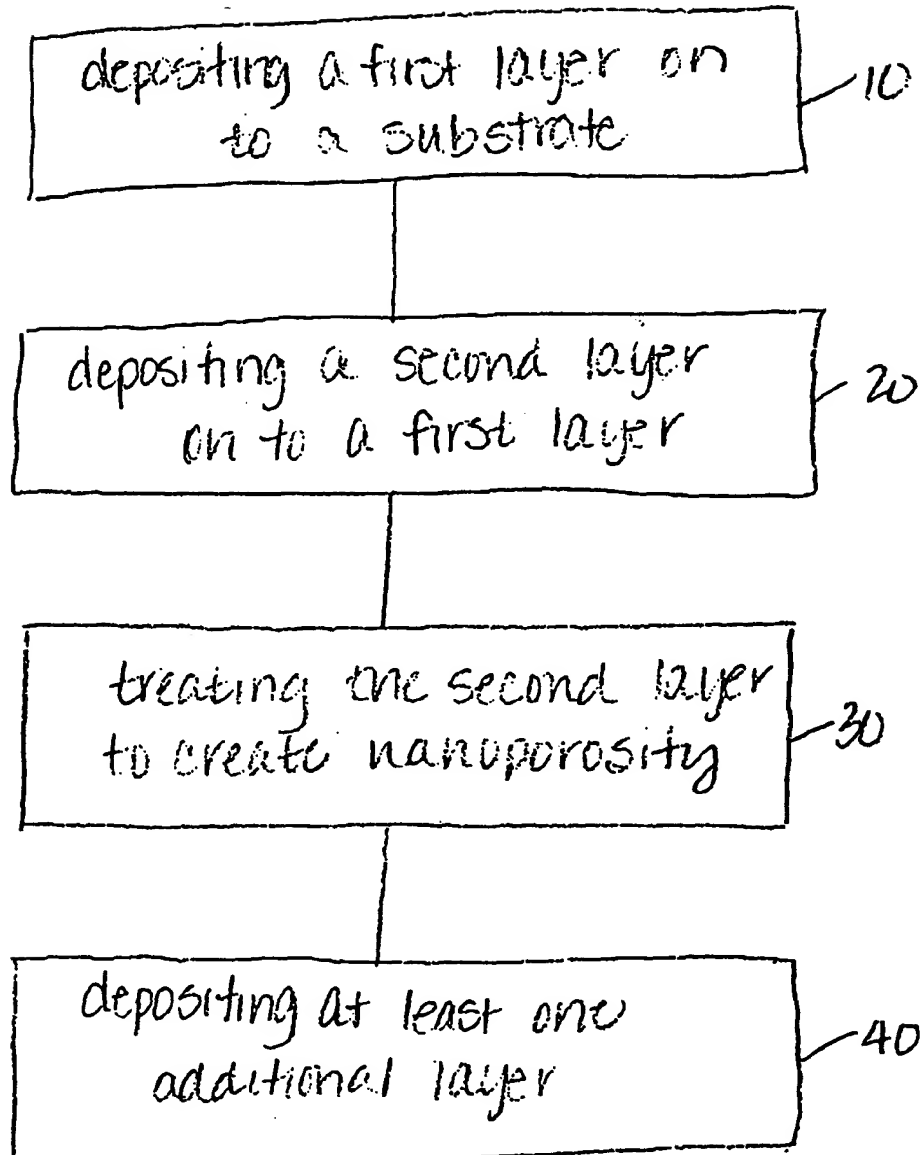 depositing a first layer on
to a substrate
10
depositing a second layer
on to a first layer
20
treating the second layer
to create nanoporosity
30
depositing at least one
additional layer
40